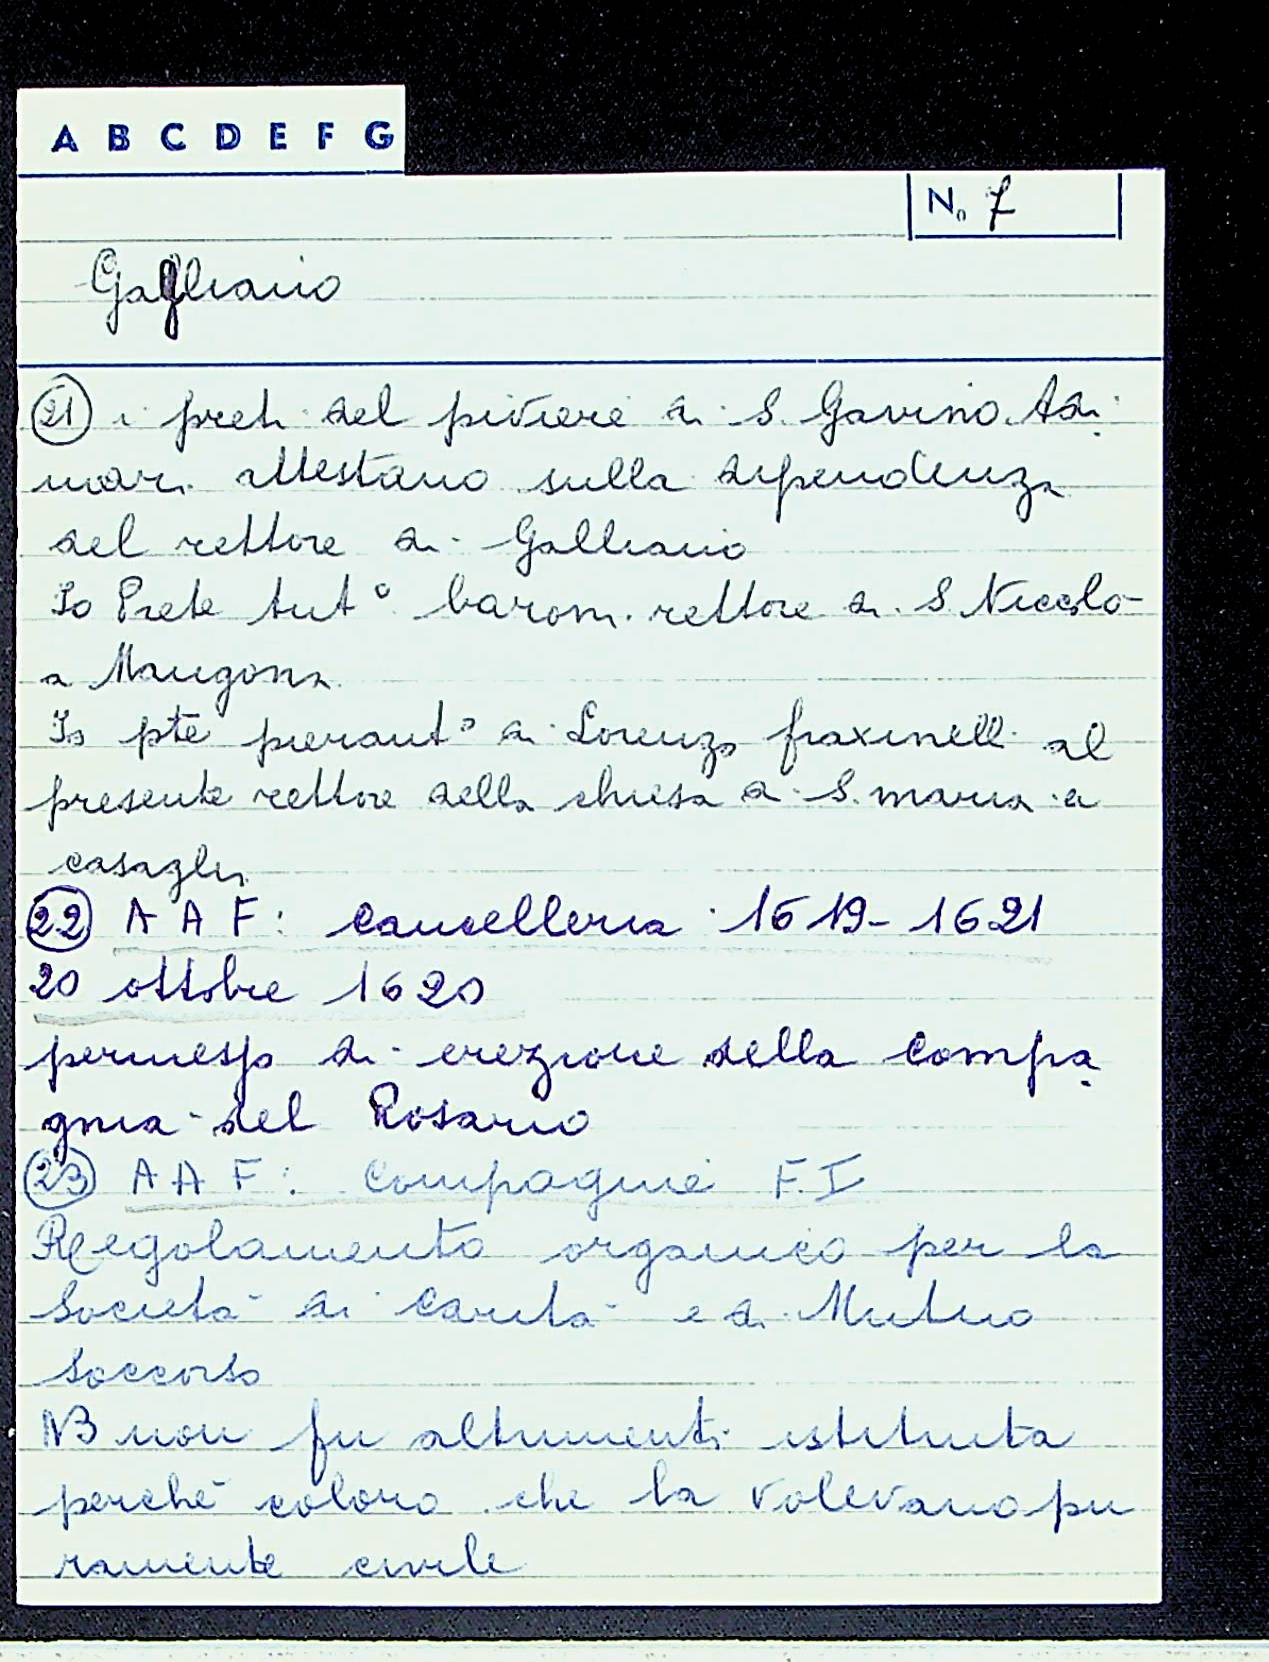 A B C D E F G
No 7
Gagliano
21 i preti del piviere di S. Gavino Adi
mari attestano sulla dipendenza
del rettore di Galliano
Io Prete Ant° baroni rettore di S Niccolo
a Mangona
Io pte pierant° di Lorenzo fraxinelli al
presente rettore della chiesa di S. maria a
casaglia
22 A A F: Cancelleria 1619-1621
20 ottobre 1620
permesso di erezione della Compa
gnia del Rosario
23 A A F: Compagnie F. I
Regolamento organico per la
Società di Carità e di Mutuo
Soccorso
NB non fu altrimenti istituita
perché coloro che la volevano pu
ramente civile